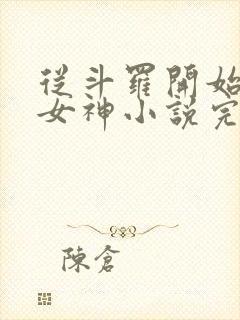 從斗羅開始
女神小說完
陳倉